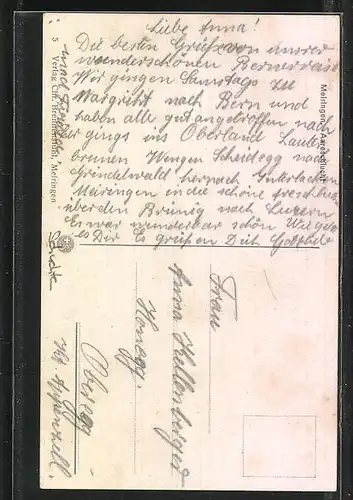 Liebe Anna!
Die besten Grüße von unsrer
wunderschönen Bernerreise
Wir gingen Samstags zu
Margritt nach Bern und
haben alle gut angetroffen nach
her gings ins Oberland Lauter
brunnen Wengen Scheidegg nach
Grindelwald hernach Interlaken
Meiringen in die schöne Areschlucht
über den Brünig nach Luzern
Es war wunderbar schön Wie geht
es Dir Es Grüßen Dich
Meiringen: Aareschlucht
5 Verlag Chr. Brennenstuhl, Meiringen
Frau
Anna Hellenberger
Honegg
Oberegg
Kt. Appenzell.